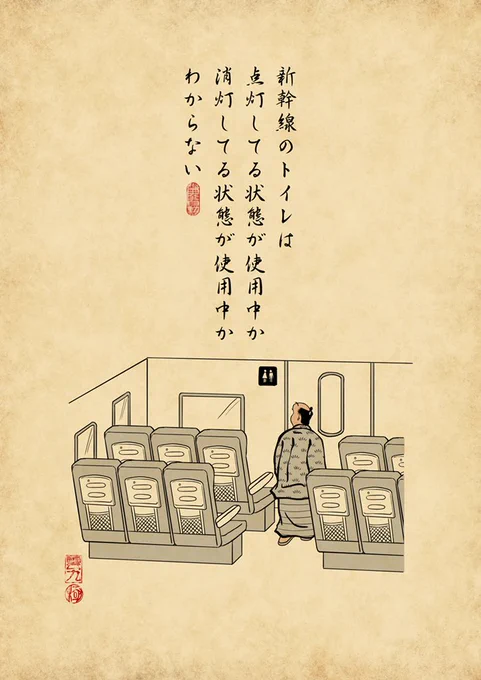 新幹線のトイレは
点灯してる状態が使用中か
消灯してる状態が使用中か
わからない